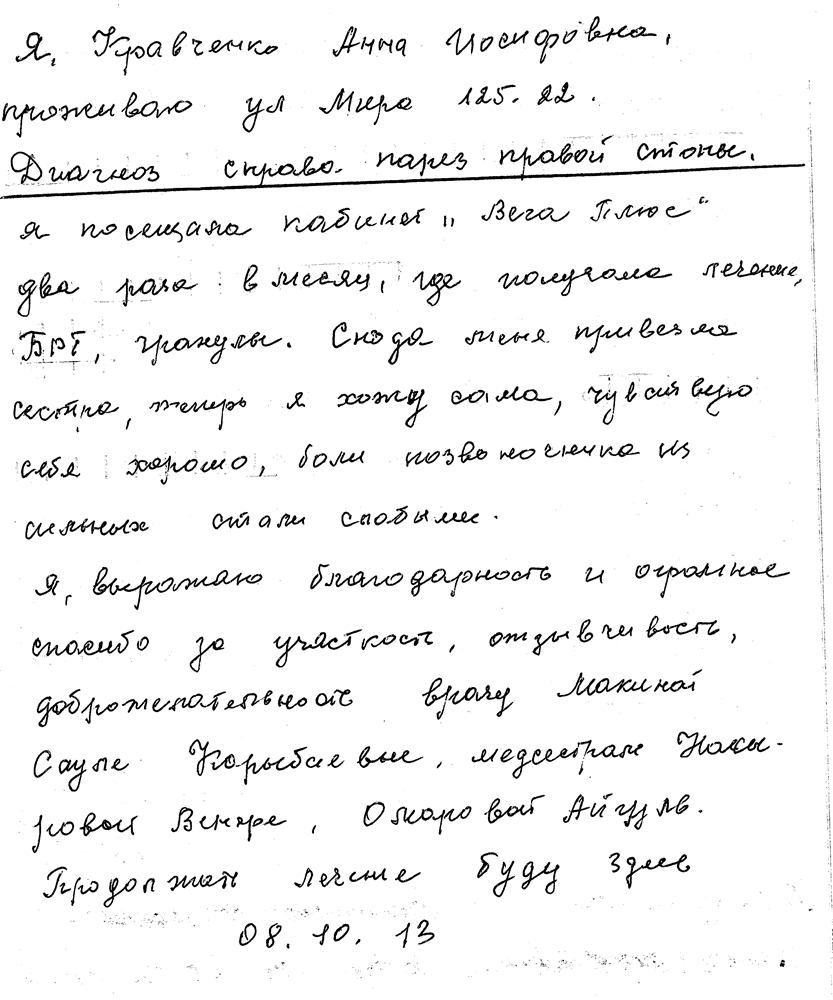 Я, Кравченко Анна Иосифовна,
проживаю ул Мира 125. 22.
Диагноз справа. парез правой стопы.
Я посещала кабинет „Вега Плюс“
два раза в месяц, где получала лечение,
БРТ, гранулы. Сюда меня привезла
сестра, теперь я хожу сама, чувствую
себя хорошо, боли позвоночника из
сильных стали слабыми.
Я, выражаю благодарность и огромное
спасибо за участкость, отзывчивость,
доброжелательность врачу Макиной
Сауле Карыбаевне, медсестрам
Венере, Омаровой Айгуль.
Продолжать лечение буду здесь
08. 10. 13